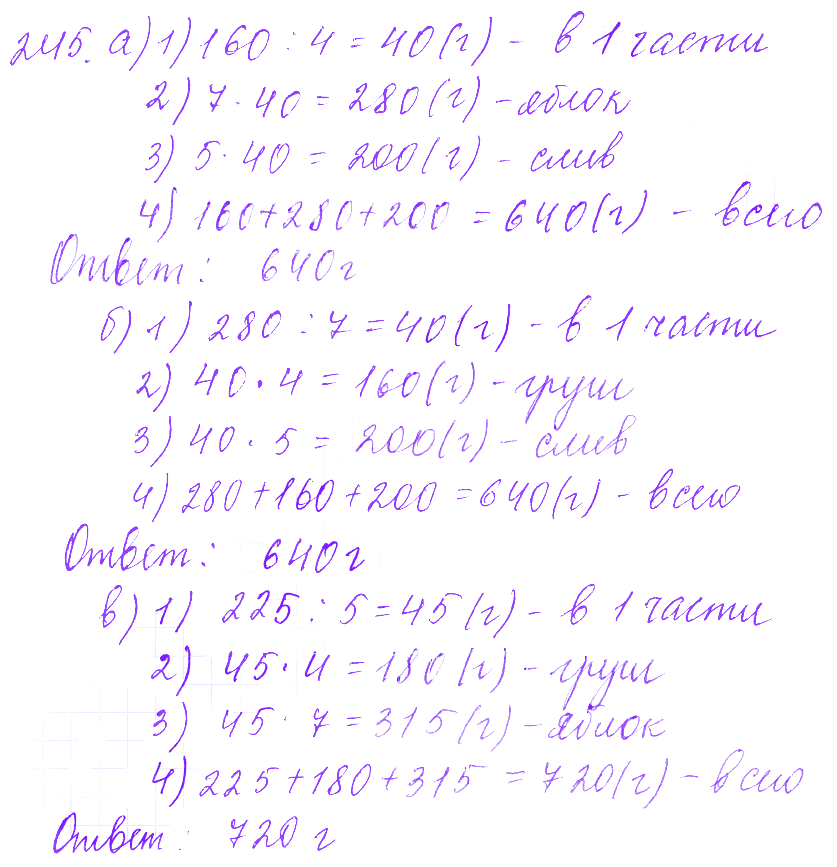 245. а) 1) 160 : 4 = 40 (г) - в 1 части
2) 7 · 40 = 280 (г) - яблок
3) 5 · 40 = 200 (г) - слив
4) 160 + 280 + 200 = 640 (г) - всего
Ответ: 640 г
б) 1) 280 : 7 = 40 (г) - в 1 части
2) 40 · 4 = 160 (г) - груш
3) 40 · 5 = 200 (г) - слив
4) 280 + 160 + 200 = 640 (г) - всего
Ответ: 640 г
в) 1) 225 : 5 = 45 (г) - в 1 части
2) 45 · 4 = 180 (г) - груш
3) 45 · 7 = 315 (г) - яблок
4) 225 + 180 + 315 = 720 (г) - всего
Ответ: 720 г